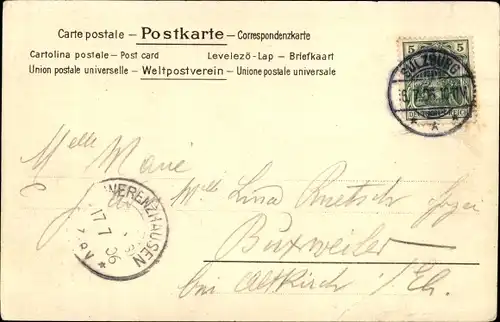 Carte postale – Postkarte – Correspondenzkarte
Cartolina postale – Post card Levelezö-Lap – Briefkaart
Union postale universelle – Weltpostverein – Unione postale universale
5 5
SULZBURG
Melle Marie
Melle Lina
WERENZHAUSEN
17 7 06
Buxweiler
bei Altkirch i/Els.